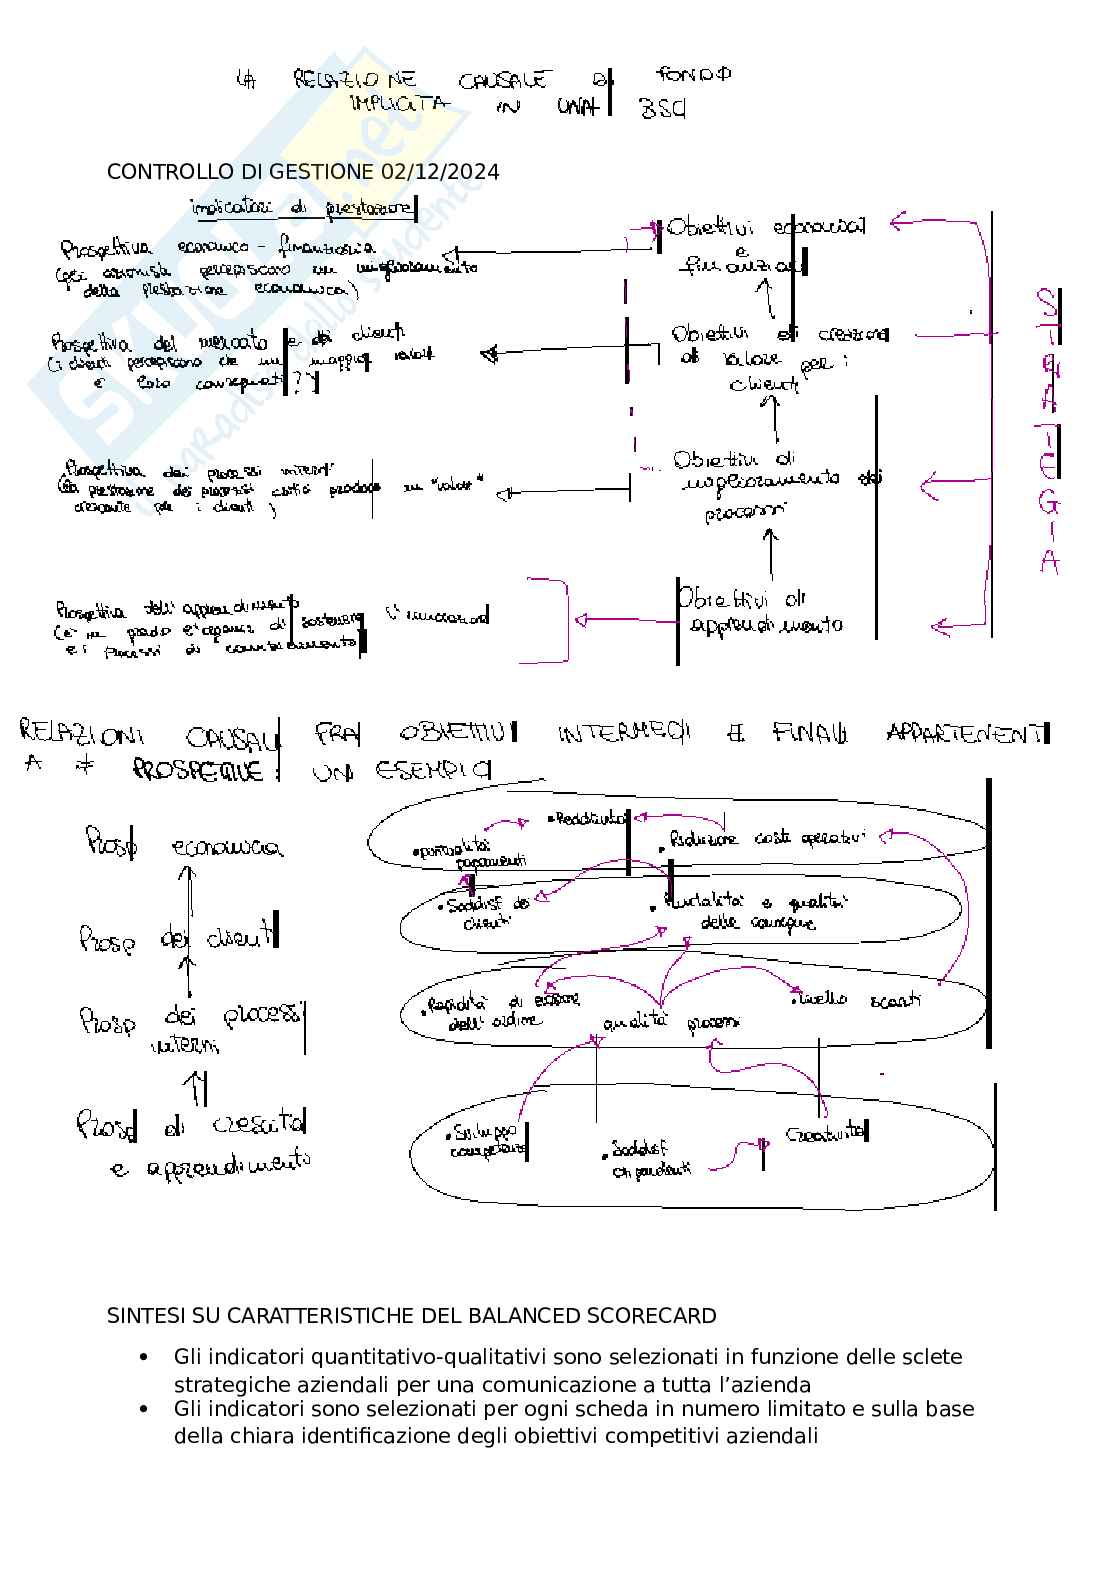 LA RELAZIONE CAUSALE DI FONDO
IMPLICITA IN UNA BSC
CONTROLLO DI GESTIONE 02/12/2024
indicatori di prestazione
Obiettivi economici
e
finanziari
Prospettiva economico - finanziaria
(gli azionisti percepiscono un miglioramento
della prestazione economica)
Prospettiva del mercato e dei clienti
(i clienti percepiscono che un maggior valore
e loro consegnati?)
Obiettivi di creazione
di valore per i
clienti
Prospettiva dei processi interni
(la prestazione dei processi critici produce un "valore"
crescente per i clienti)
Obiettivi di
miglioramento dei
processi
Prospettiva dell'apprendimento
(è in grado di sostenere l'innovazione
e i processi di cambiamento)
Obiettivi di
apprendimento
STRATEGIA
RELAZIONI CAUSALI FRA OBIETTIVI INTERMEDI E FINALI APPARTENENTI
A ≠ PROSPETTIVE: UN ESEMPIO
Prosp economica
• Redditività
• puntualità
pagamenti
• Riduzione costi operativi
Prosp dei clienti
• Soddisf dei
clienti
• Puntualità e qualità
delle consegne
Prosp dei processi
interni
• Rapidità di evasione
dell'ordine
qualità processi
• Livello scarti
Prosp di crescita
e apprendimento
• Sviluppo
competenze
• Soddisf
dipendenti
Creatività
SINTESI SU CARATTERISTICHE DEL BALANCED SCORECARD
• Gli indicatori quantitativo-qualitativi sono selezionati in funzione delle sclete
strategiche aziendali per una comunicazione a tutta l'azienda
• Gli indicatori sono selezionati per ogni scheda in numero limitato e sulla base
della chiara identificazione degli obiettivi competitivi aziendali